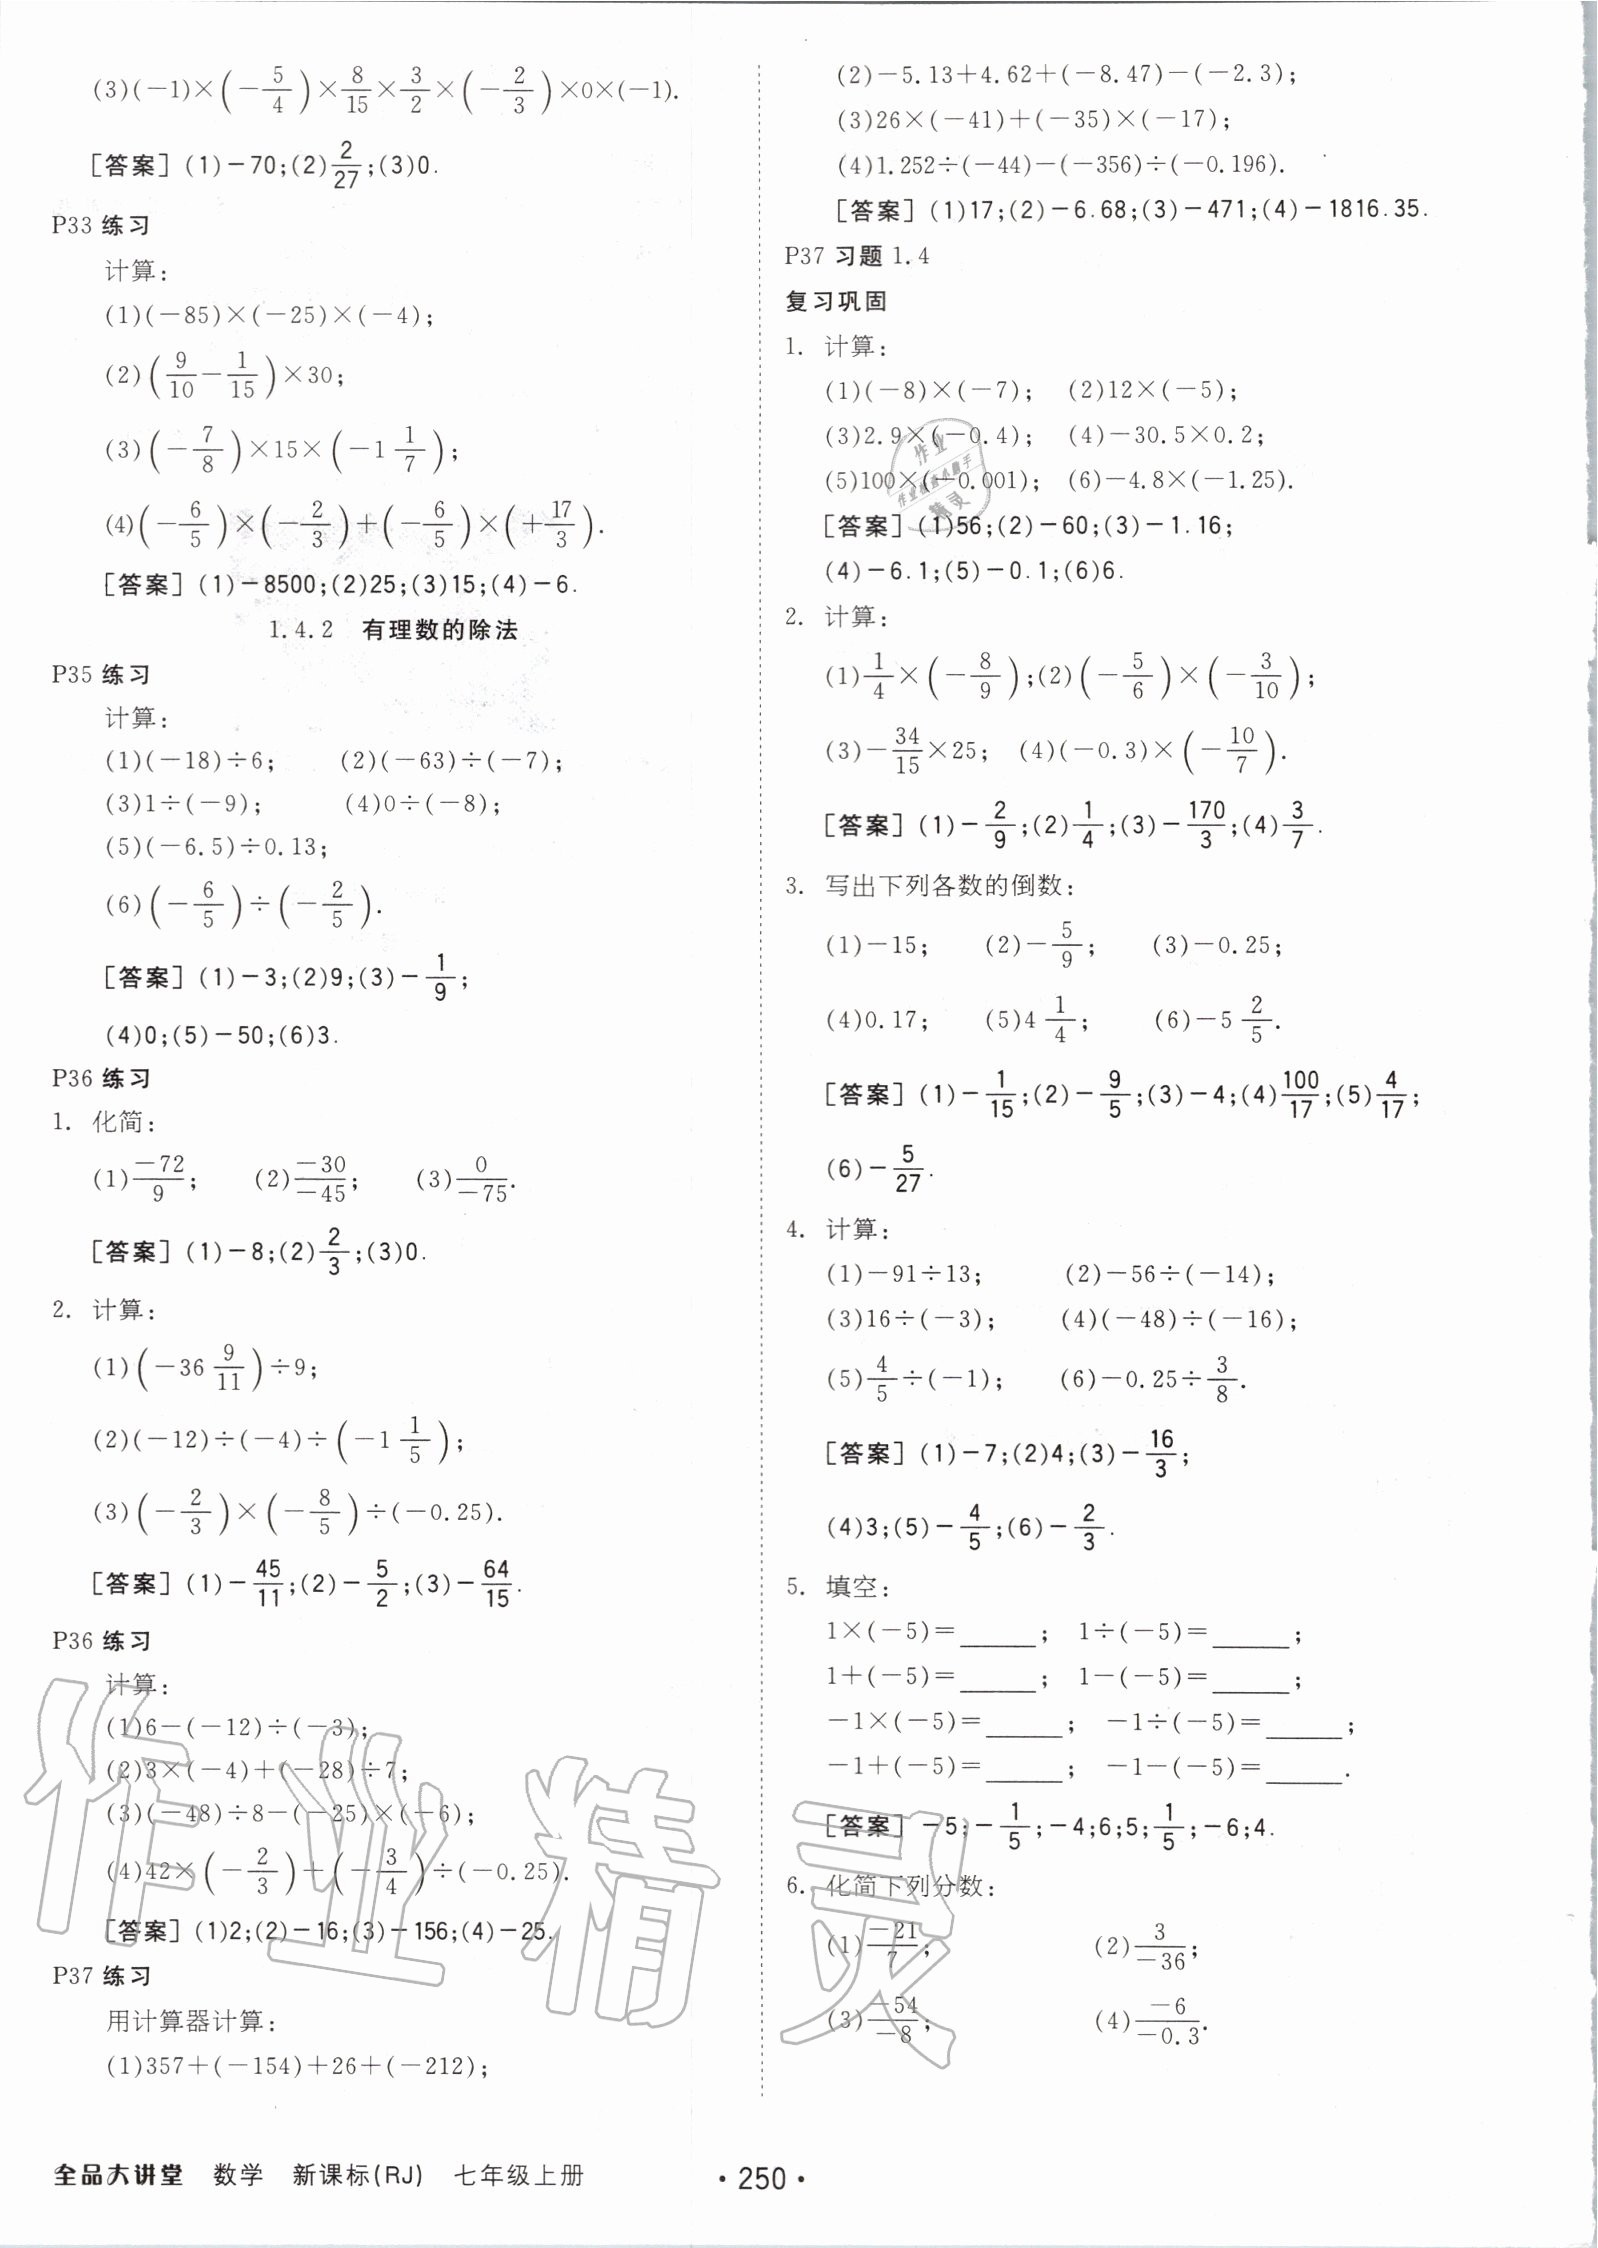 (3)(－1)×(－5/4)×8/15×3/2×(－2/3)×0×(－1).
[答案](1)－70;(2)2/27;(3)0.
P33 练习
计算:
(1)(－85)×(－25)×(－4);
(2)(9/10－1/15)×30;
(3)(－7/8)×15×(－1 1/7);
(4)(－6/5)×(－2/3)＋(－6/5)×(＋17/3).
[答案](1)－8500;(2)25;(3)15;(4)－6.
1.4.2 有理数的除法
P35 练习
计算:
(1)(－18)÷6; (2)(－63)÷(－7);
(3)1÷(－9); (4)0÷(－8);
(5)(－6.5)÷0.13;
(6)(－6/5)÷(－2/5).
[答案](1)－3;(2)9;(3)－1/9;
(4)0;(5)－50;(6)3.
P36 练习
1. 化简:
(1)－72/9; (2)－30/－45; (3)0/－75.
[答案](1)－8;(2)2/3;(3)0.
2. 计算:
(1)(－36 9/11)÷9;
(2)(－12)÷(－4)÷(－1 1/5);
(3)(－2/3)×(－8/5)÷(－0.25).
[答案](1)－45/11;(2)－5/2;(3)－64/15.
P36 练习
计算:
(1)6－(－12)÷(－3);
(2)3×(－4)＋(－28)÷7;
(3)(－48)÷8－(－25)×(－6);
(4)42×(－2/3)＋(－3/4)÷(－0.25).
[答案](1)2;(2)－16;(3)－156;(4)－25.
P37 练习
用计算器计算:
(1)357＋(－154)＋26＋(－212);
(2)－5.13＋4.62＋(－8.47)－(－2.3);
(3)26×(－41)＋(－35)×(－17);
(4)1.252÷(－44)－(－356)÷(－0.196).
[答案](1)17;(2)－6.68;(3)－471;(4)－1816.35.
P37 习题 1.4
复习巩固
1. 计算:
(1)(－8)×(－7); (2)12×(－5);
(3)2.9×(－0.4); (4)－30.5×0.2;
(5)100×(－0.001); (6)－4.8×(－1.25).
[答案](1)56;(2)－60;(3)－1.16;
(4)－6.1;(5)－0.1;(6)6.
2. 计算:
(1)1/4×(－8/9);(2)(－5/6)×(－3/10);
(3)－34/15×25; (4)(－0.3)×(－10/7).
[答案](1)－2/9;(2)1/4;(3)－170/3;(4)3/7.
3. 写出下列各数的倒数:
(1)－15; (2)－5/9; (3)－0.25;
(4)0.17; (5)4 1/4; (6)－5 2/5.
[答案](1)－1/15;(2)－9/5;(3)－4;(4)100/17;(5)4/17;
(6)－5/27.
4. 计算:
(1)－91÷13; (2)－56÷(－14);
(3)16÷(－3); (4)(－48)÷(－16);
(5)4/5÷(－1); (6)－0.25÷3/8.
[答案](1)－7;(2)4;(3)－16/3;
(4)3;(5)－4/5;(6)－2/3.
5. 填空:
1×(－5)＝______; 1÷(－5)＝______;
1＋(－5)＝______; 1－(－5)＝______;
－1×(－5)＝______; －1÷(－5)＝______;
－1＋(－5)＝______; －1－(－5)＝______.
[答案]－5;－1/5;－4;6;5;1/5;－6;4.
6. 化简下列分数:
(1)－21/7; (2)3/－36;
(3)－54/－8; (4)－6/－0.3.
作业精灵
全品大讲堂 数学 新课标(RJ) 七年级上册 ·250·